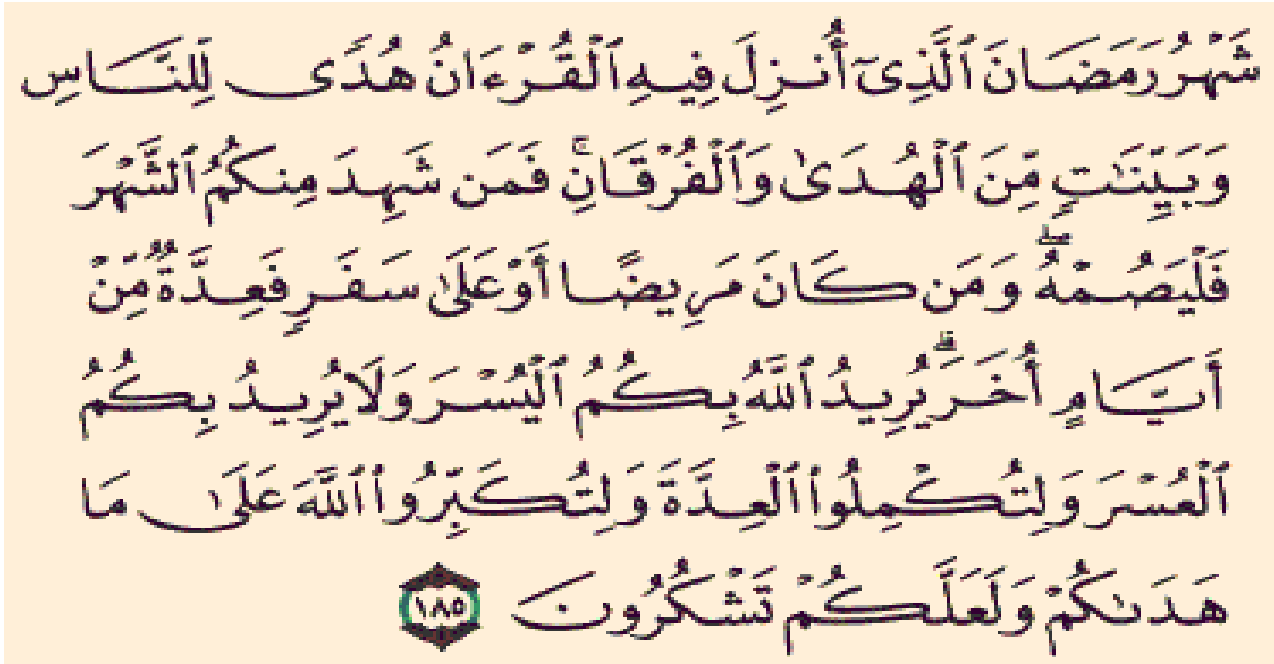 شَهْرُ رَمَضَانَ ٱلَّذِىٓ أُنزِلَ فِيهِ ٱلْقُرْءَانُ هُدًى لِّلنَّاسِ
وَبَيِّنَٰتٍ مِّنَ ٱلْهُدَىٰ وَٱلْفُرْقَانِ ۚ فَمَن شَهِدَ مِنكُمُ ٱلشَّهْرَ
فَلْيَصُمْهُ ۖ وَمَن كَانَ مَرِيضًا أَوْ عَلَىٰ سَفَرٍ فَعِدَّةٌ مِّنْ
أَيَّامٍ أُخَرَ ۗ يُرِيدُ ٱللَّهُ بِكُمُ ٱلْيُسْرَ وَلَا يُرِيدُ بِكُمُ
ٱلْعُسْرَ وَلِتُكْمِلُوا۟ ٱلْعِدَّةَ وَلِتُكَبِّرُوا۟ ٱللَّهَ عَلَىٰ مَا
هَدَىٰكُمْ وَلَعَلَّكُمْ تَشْكُرُونَ ١٨٥